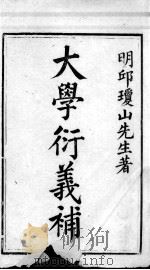 明邱瓊山先生著
大學衍義補